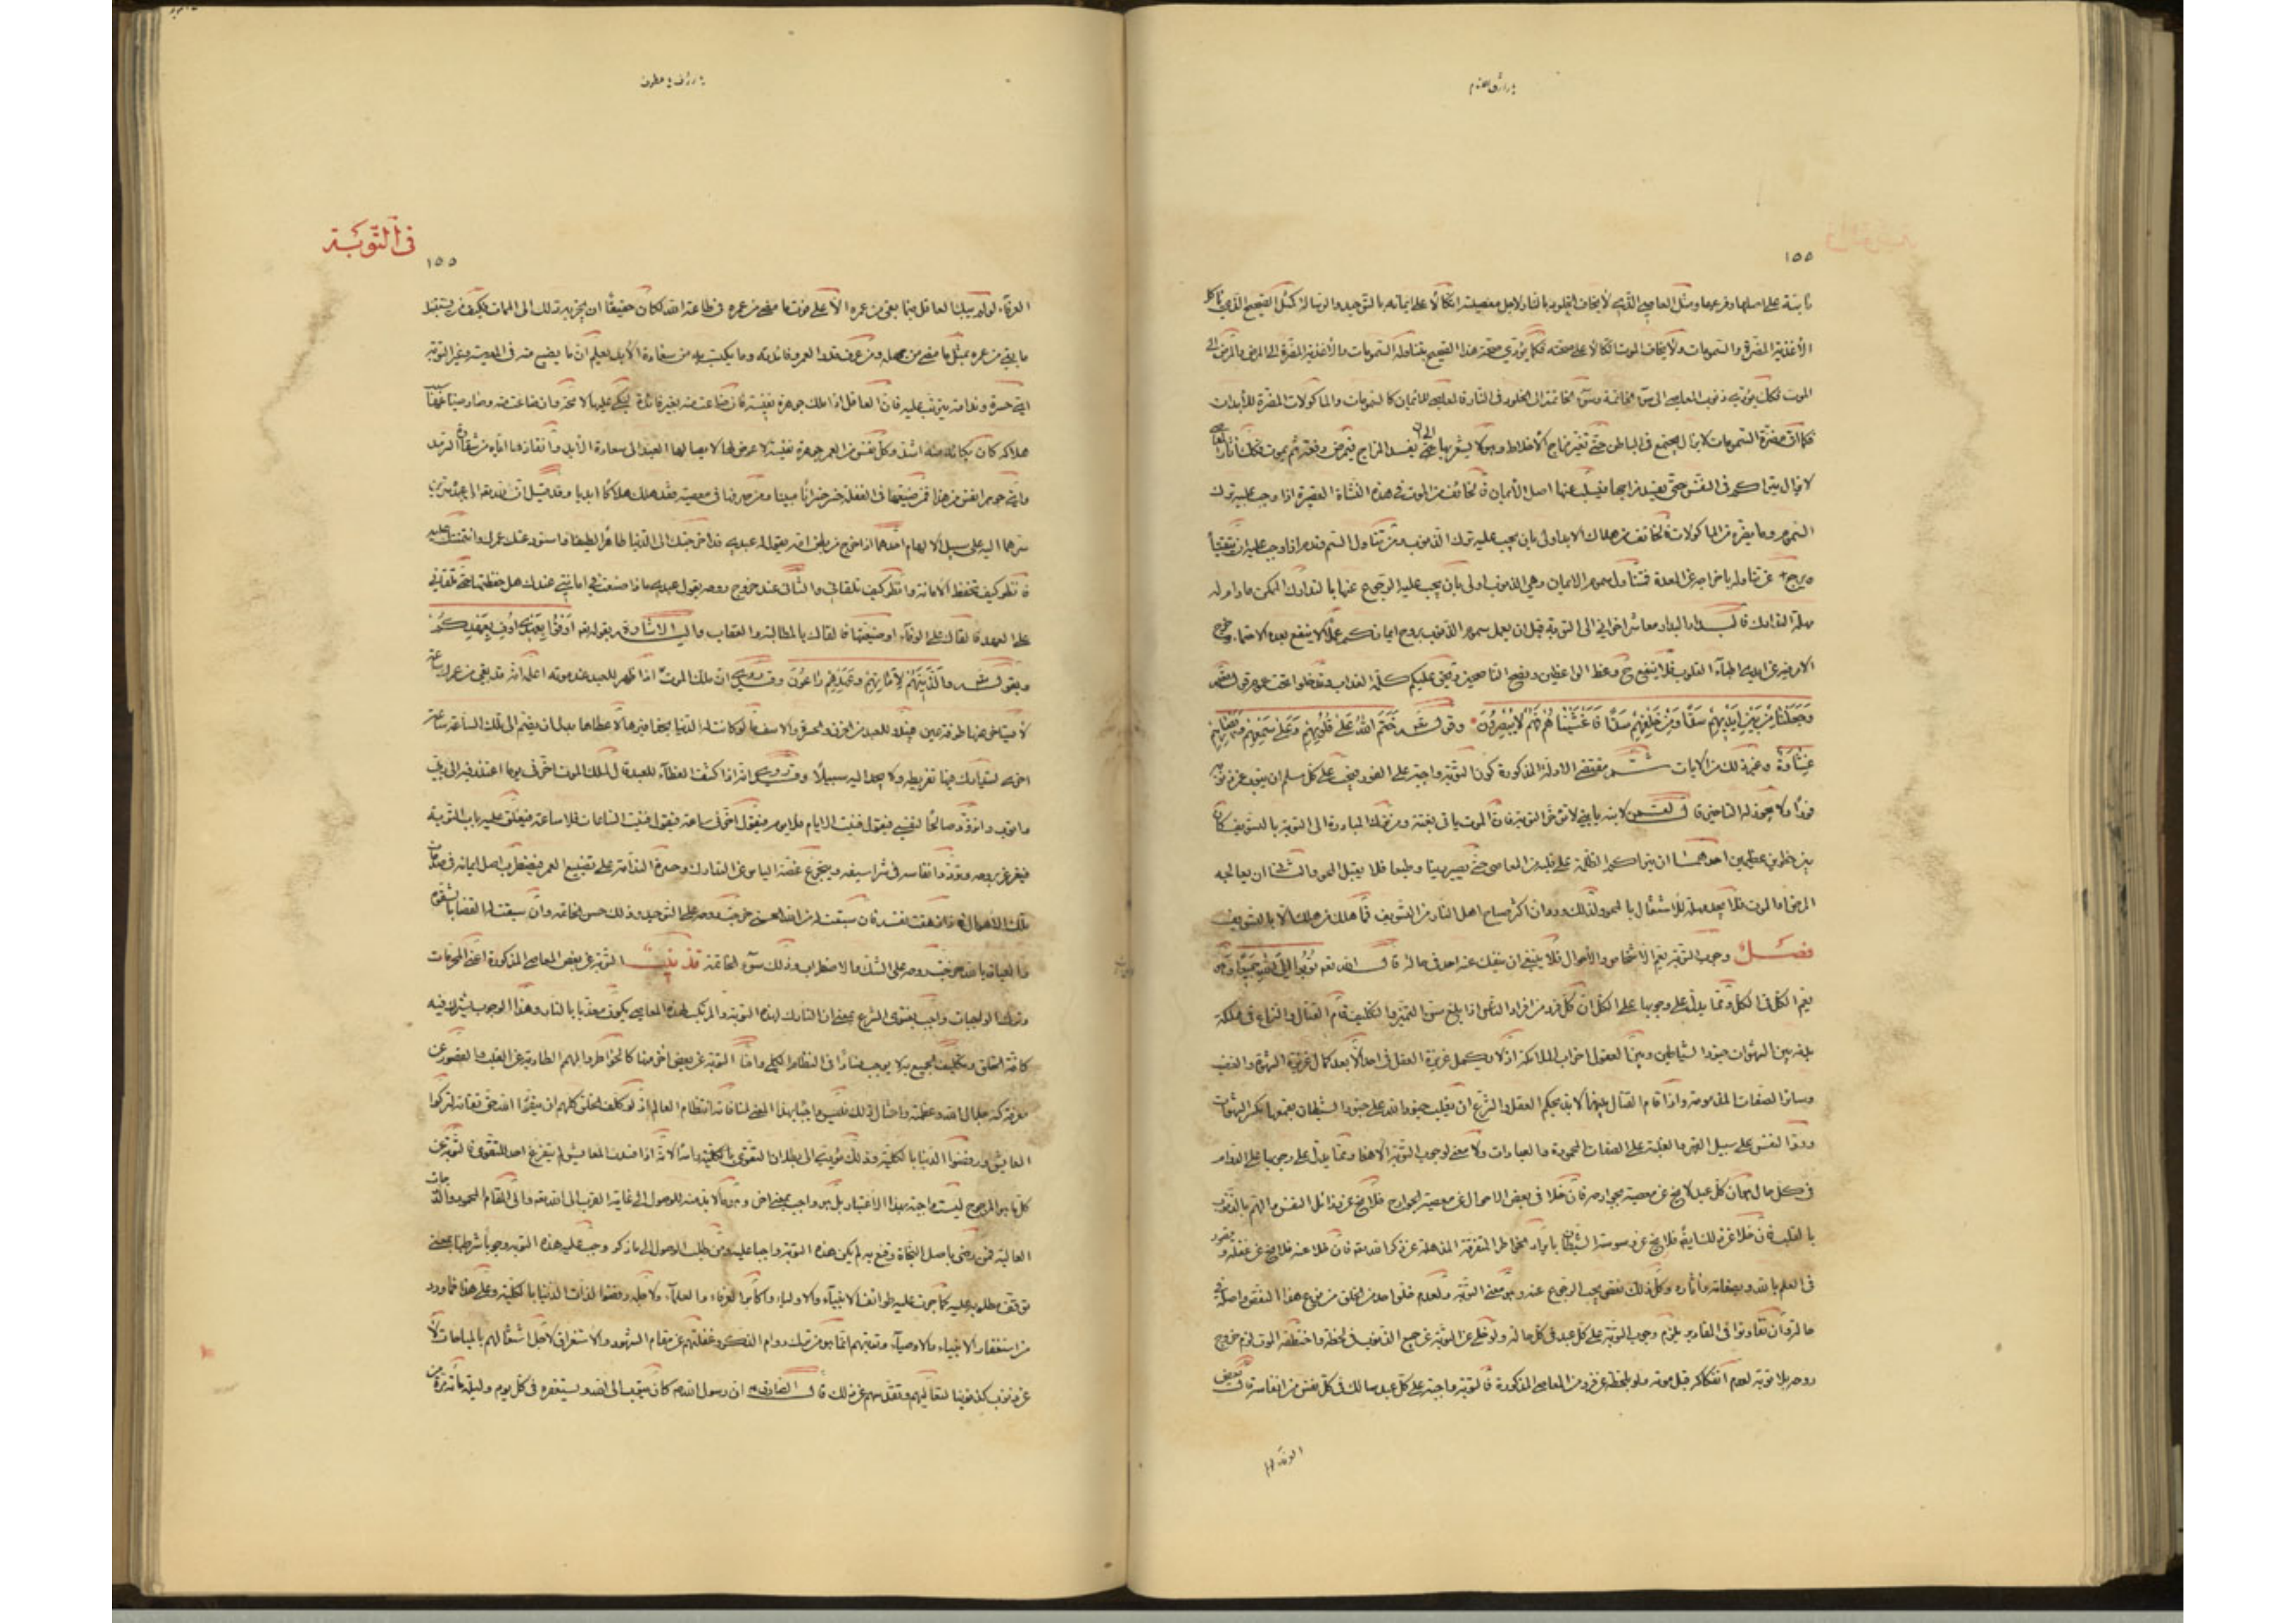 ١٥٥
ثابتة على اصلها وفرعها ومثل العاصي الذي لا يخاف الخلود بالنار لاجل معصيته اتكالا على ايمانه بالتوحيد والرسالة كمثل الصحيح الذي ياكل
الأغذية المضرة والسمومات ولا يخاف الموت اتكالا على صحته فكما يؤدي صحة هذا الصحيح بتناوله السمومات والأغذية المضرة الى المرض والمرض الى
الموت فكك يؤدي ذنوب المعاصي الى سوء الخاتمة وسوء الخاتمة الى الخلود في النار فالمعاصي للايمان كالسمومات والماكولات المضرة للأبدان
فكما ان مضرة السمومات لا يزال يجتمع في الباطن حتى تغير مزاج الاخلاط وهو لا يشعر بها الى ان يفسد المزاج فيمرض دفعة ثم يموت فكك آثار المعاصي
لا يزال يتراكم في النفس حتى يفسد مزاجها فيسلب عنها اصل الأيمان فالخائف من الموت في هذه النشأة القصيرة اذا وجب عليه ترك
السموم وما يضره من الماكولات فالخائف من هلاك الابد اولى بان يجب عليه ترك الذنوب ومن تناول السم وندم اذا وجب عليه ان يتقيأ
ويرجع عن تناوله باخراجه عن المعدة فمتناول سموم الايمان وهي الذنوب اولى بان يجب عليه الرجوع عنها بالتدارك الممكن ما دام له
مهلة التدارك فالبدار البدار معاشر اخواني الى التوبة قبل ان يعمل سموم الذنوب بروح ايمانكم عملا لا ينفع بعده الاحتماء وخرج
الامر فيه عن ايدي اطباء القلوب فلا ينفع ح وعظ الواعظين ونصح الناصحين وتحق عليكم كلمة العذاب وتدخلوا تحت عموم قوله تعالى
وَجَعَلْنَا مِنْ بَيْنِ اَيْدِيهِمْ سَدًّا وَمِنْ خَلْفِهِمْ سَدًّا فَاَغْشَيْنَاهُمْ فَهُمْ لَا يُبْصِرُونَ وقوله خَتَمَ اللهُ عَلَى قُلُوبِهِمْ وَعَلَى سَمْعِهِمْ وَعَلَى اَبْصَارِهِمْ
غِشَاوَةٌ وغير ذلك من الآيات ثم مقتضى الادلة المذكورة كون التوبة واجبة على الفور فيجب على كل مسلم ان يتوب عن ذنوبه
فورا ولا يجوز له التاخير قال لقمن لابنه يا بني لا تؤخر التوبة فان الموت ياتي بغتة ومن ترك المبادرة الى التوبة بالتسويف كان
بين خطرين عظيمين احدهما ان يتراكم الظلمة على قلبه من المعاصي حتى يصير رينا وطبعا فلا يقبل المحو والثاني ان يعاجله
المرض او الموت فلا يجد مهلة للاشتغال بالمحو ولذلك ورد ان اكثر صياح اهل النار من التسويف فما هلك من هلك الا بالتسويف
فصل وجوب التوبة يعم الاشخاص والأحوال فلا ينبغي ان ينفك عنه احد في حالة قال الله تعم تُوبُوا اِلَى اللهِ جَمِيعًا وهو
يعم الكل في الكل ومما يدل على وجوبها على الكل ان كل فرد من افراد الناس اذا بلغ سن التميز والتكليف قام القتال والنزاع في مملكة
بدنه بين الشهوات جنود الشياطين وبين العقول احزاب الملائكة اذ لا يكمل غريزة العقل في احد الا بعد كمال غريزة الشهوة والغضب
وسائر الصفات المذمومة واذا قام القتال بينهما لا بد بحكم العقل والشرع ان يغلب جنود الله على جنود الشيطان بقمعها بكسر الشهوات
ورد النفس على سبيل القهر والغلبة على الصفات المحمودة والعبادات ولا معنى لوجوب التوبة الا هذا ومما يدل على وجوبها على الدوام
في كل حال هو ان كل عبد لا يخ عن معصية بجوارحه فان خلا في بعض الاحوال عن معصية الجوارح فلا يخ عن رذائل النفس والهم بالذنوب
بالقلب فان خلا عن ذلك ايضا فلا يخ عن وسوسة الشيطان بايراد الخواطر المتفرقة المذهلة عن ذكر الله فان خلا عنه فلا يخ عن غفلة وقصور
في العلم بالله وبصفاته وآثاره وكل ذلك نقص يجب الرجوع عنه وهو معنى التوبة ولعدم خلو احد من الخلق من نوع هذا النقص واصله في
حالة وان تفاوتوا في المقادير يلزم وجوب التوبة على كل عبد في كل حالة ولو خلي عن التوبة عن جميع الذنوب في لحظة واختطفه الموت لزم خروج
روحه بلا توبة لعدم انفكاكه قبل موته ولو بلحظة عن فرد من المعاصي المذكورة فالتوبة واجبة على كل عبد سالك في كل نفس من انفاسه قال بعض
العرفاء لو
في التوبة
١٥٥
العرفاء لو لم يبك العاقل فيما بقي من عمره الا على فوت ما مضى من عمره في طاعة الله لكان حقيقا ان يخزيه ذلك الى الممات فكيف من يستقبل
ما بقي من عمره بمثل ما مضى من جهله ومن عرف قدر العمر وفائدته وما يكتسب به من سعادة الأبد يعلم ان ما يضيع منه في المعصية وغير التوبة
اي حسرة وندامة يترتب عليه فان العاقل اذا ملك جوهرة نفيسة فان ضاعت منه بغير فائدة يبكي عليها لا محة وان ضاعت منه وصار ضياعها سبب
هلاكه كان بكائه منه اشد وكل نفس من العمر جوهرة نفيسة لا عوض لها لايصالها العبد الى سعادة الأبد وانقاذها اياه من شقاوة السرمد
واي جوهر انفس من هذا فمن ضيعها في الغفلة خسر خسرانا مبينا ومن صرفها في معصية فقد هلك هلاكا ابديا وقد قيل ان لله تعالى الى عبده سرين
يسرهما اليه على سبيل الالهام احدهما اذا خرج من بطن امه يقول له عبدي قد اخرجتك الى الدنيا طاهرا لطيفا واستودعتك عمرك وائتمنتك عليه
فانظر كيف تحفظ الأمانة وانظر كيف تلقاني والثاني عند خروج روحه يقول عبدي ماذا صنعت في امانتي عندك هل حفظتها حتى تلقاني
على العهد فالقاك على الوفاء او ضيعتها فالقاك بالمطالبة والعقاب والى الاشارة بقوله تع اَوْفُوا بِعَهْدِي اُوفِ بِعَهْدِكُمْ
وبقوله وَالَّذِينَ هُمْ لِاَمَانَاتِهِمْ وَعَهْدِهِمْ رَاعُونَ وقد روي ان ملك الموت اذا ظهر للعبد عند موته اعلمه انه قد بقي من عمرك ساعة
لا يستاخر عنها طرفة عين فيبدو للعبد من الحزن والحسرة والاسف ما لو كانت له الدنيا بحذافيرها لاعطاها بدل ان يضم الى تلك الساعة ساعة
اخرى ليتدارك فيها تفريطه ولا يجد اليه سبيلا وقد روي انه اذا كشف الغطاء للعبد قال لملك الموت اخرني يوما اعتذر فيه الى ربي
واتوب واتزود صالحا لنفسي فيقول فنيت الايام فلا يوم فيقول اخرني ساعة فيقول فنيت الساعات فلا ساعة فيغلق عليه باب التوبة
فيغرغر بروحه وتردد انفاسه في شراسيفه ويتجرع غصة الياس عن التدارك وحسرة الندامة على تضييع العمر فيضطرب اصل ايمانه في صدمات
تلك الاهوال فاذا زهقت نفسه فان سبقت له من الله الحسنى خرجت روحه على التوحيد وذلك حسن الخاتمة وان سبقت له القضاء بالشقوة
والعياذ بالله خرجت روحه على الشك والاضطراب وذلك سوء الخاتمة تذنيب التوبة عن بعض المعاصي المذكورة اعني المحرمات
وترك الواجبات واجب بفتوى الشرع بمعنى ان التارك لهذه التوبة والمرتكب لهذه المعاصي يكون معذبا بالنار وهذا الوجوب يشترك فيه
كافة الخلق وتكليف الجميع به لا يوجب فسادا في النظام الكلي واما التوبة عن بعض اخر منها كالخواطر والهمم الطارية على القلب والقصور عن
معرفة كنه جلال الله وعظمته وامثال ذلك فليس واجبا بهذا المعنى لمنافاته انتظام العالم اذ لو كلف الخلق كلهم ان يتقوا الله حق تقاته لتركوا
المعايش ورفضوا الدنيا بالكلية وذلك يؤدي الى بطلان التقوى بالكلية راسا لانه اذا فسدت المعايش لم يتفرغ احد للتقوى فالتوبة عن
كل ما هو المرجوح ليست واجبة بهذا الاعتبار بل هو واجب بمعنى اخر وهو ما لا بد منه للوصول الى غاية القرب الى الله تع والى المقام المحمود والدرجات
العالية فمن رضى باصل النجاة وقنع به لم يكن هذه التوبة واجبا عليه ومن طلب الوصول الى ما ذكر وجب عليه هذه التوبة وجوبا شرطيا بمعنى
توقف مطلوبه عليه كما جرت عليه طوائف الانبياء والاولياء واكابر العرفاء والعلماء ولاجله رفضوا لذات الدنيا بالكلية وعلى هذا فما ورد
من استغفار الانبياء والاوصياء وتوبتهم انما هو من ترك دوام الذكر وغفلتهم عن مقام الشهود والاستغراق لاجل اشتغالهم بالمباحات لا
عن ذنوب كذنوبنا لتعاليهم وتقدسهم عن ذلك قال الصادق ان رسول الله كان يتوب الى الله ويستغفره في كل يوم وليلة مائة مرة من